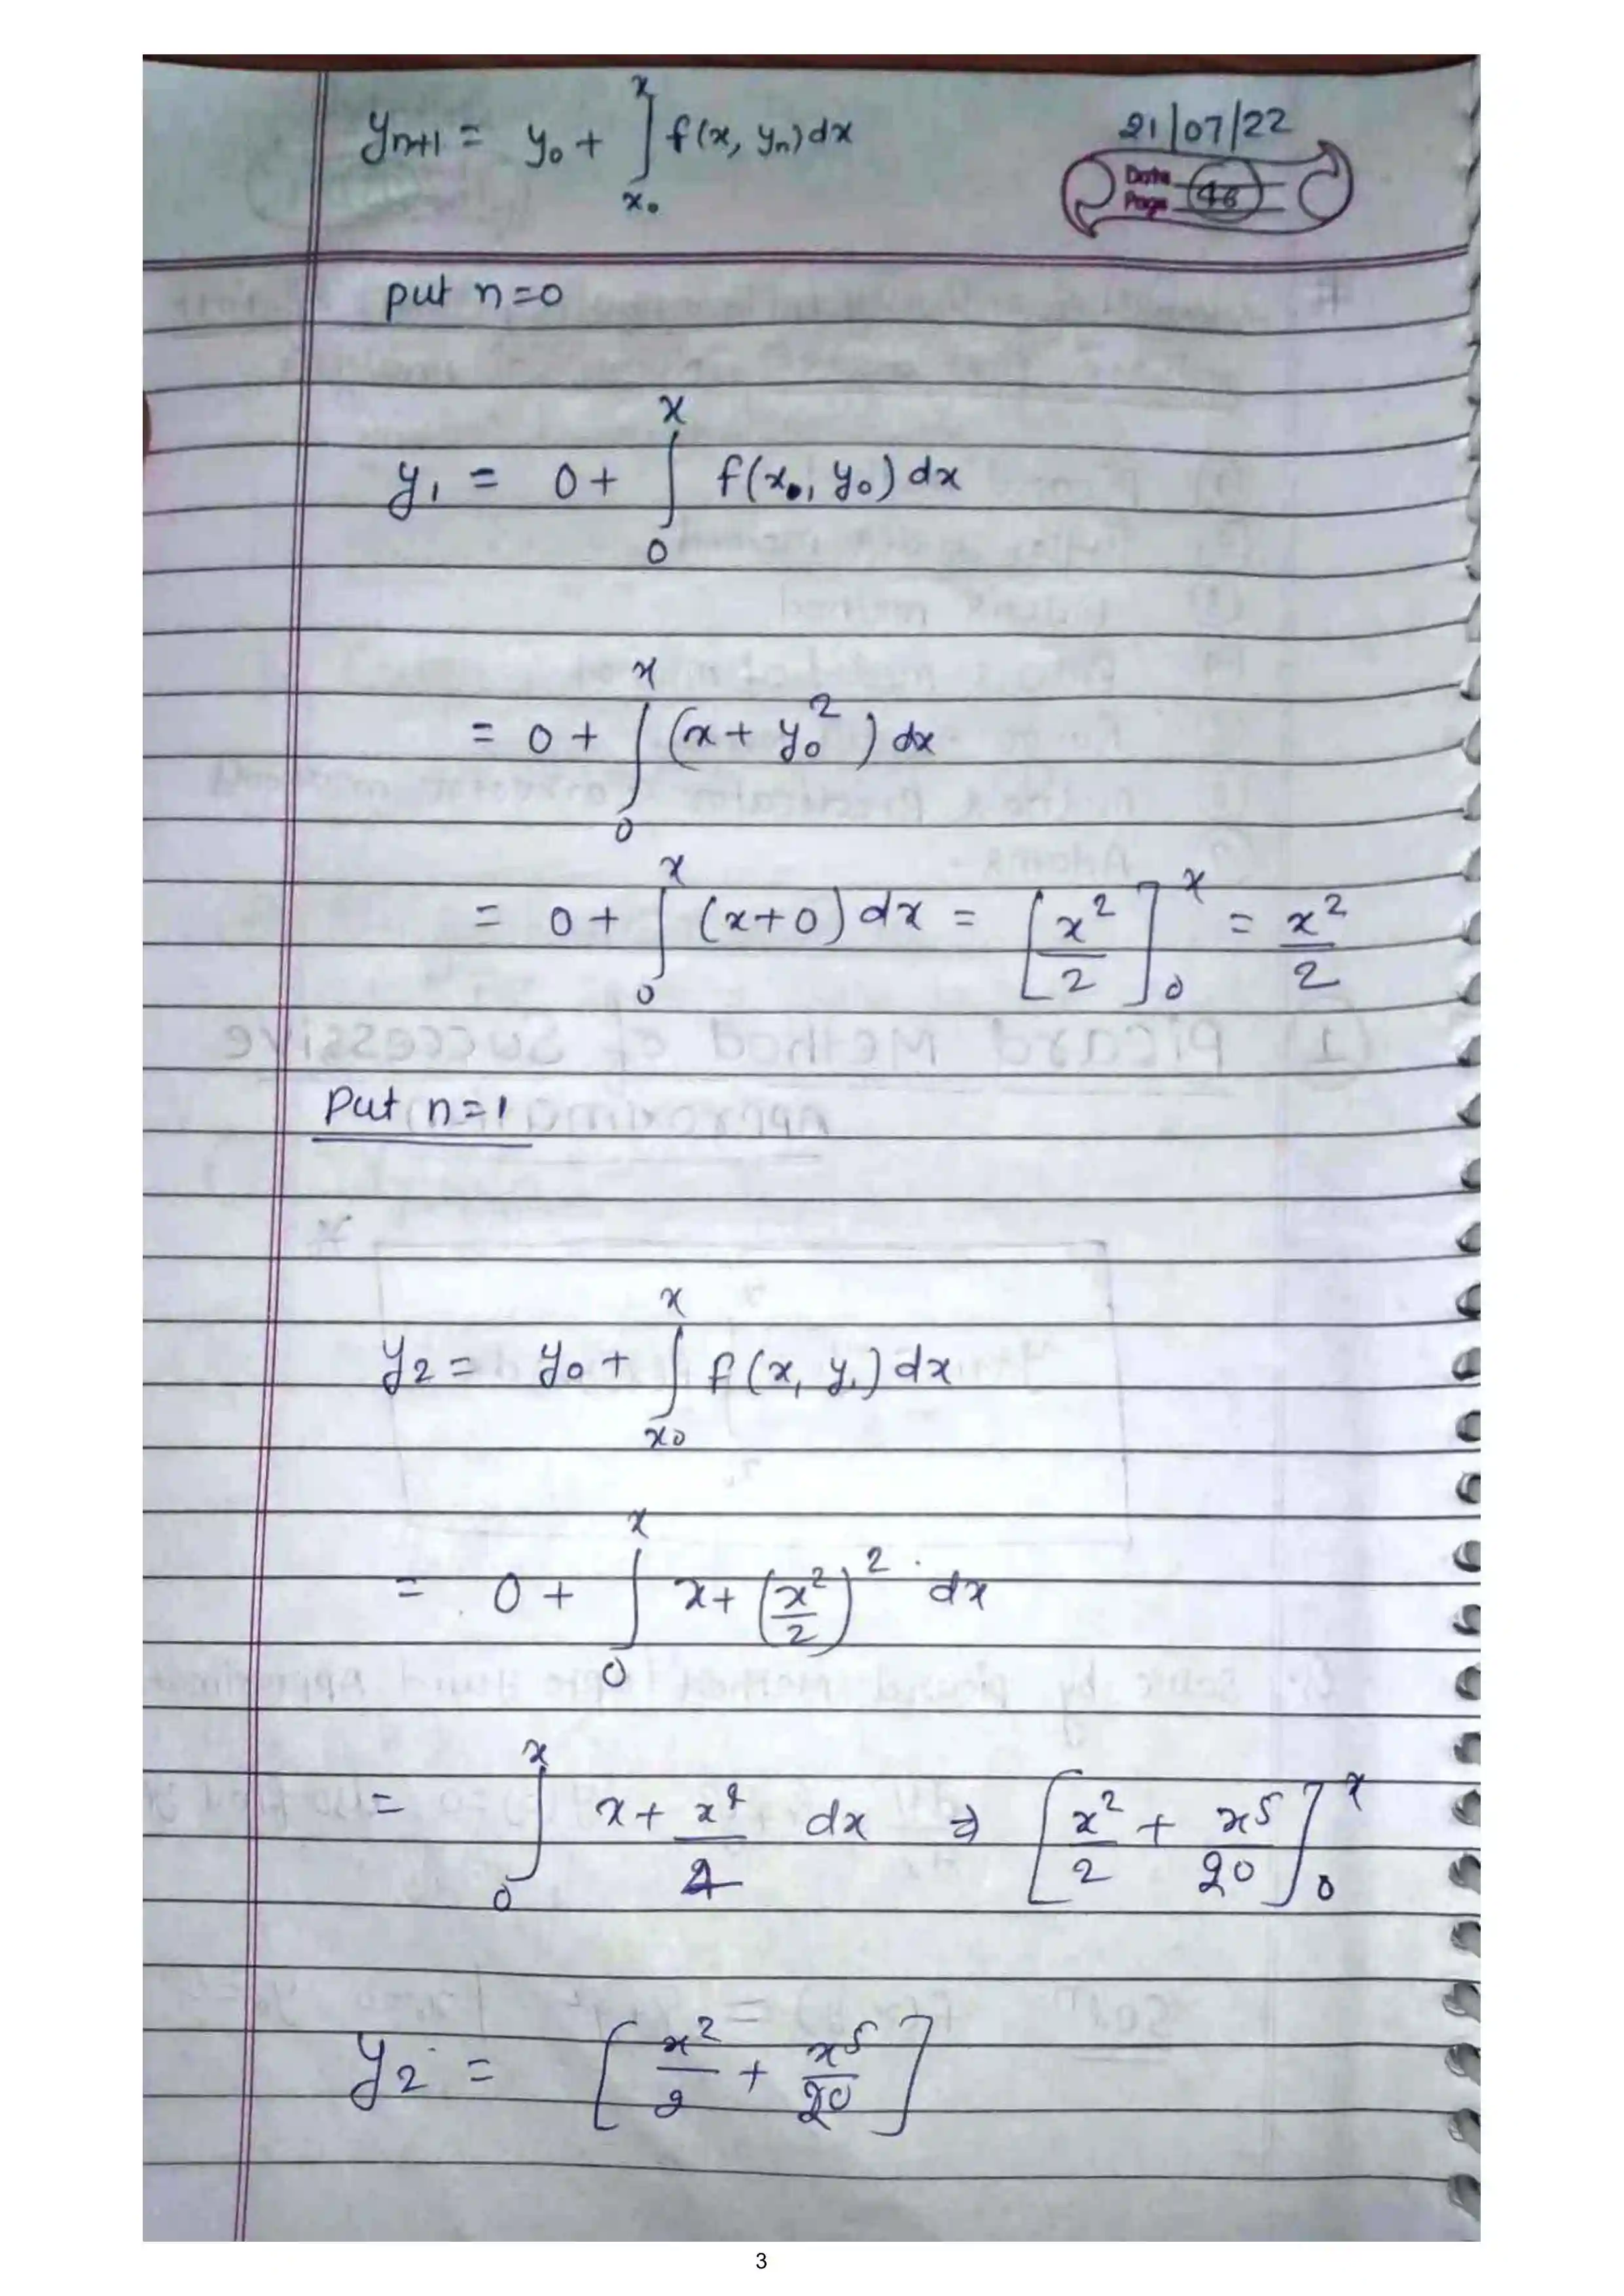 21/07/22
y_{n+1} = y_0 + ∫_{x_0}^{x} f(x, y_n) dx
Date
Page 46
put n=0
y_1 = 0 + ∫_{0}^{x} f(x_0, y_0) dx
= 0 + ∫_{0}^{x} (x + y_0^2) dx
= 0 + ∫_{0}^{x} (x+0) dx = [x^2/2]_{0}^{x} = x^2/2
Put n=1
y_2 = y_0 + ∫_{x_0}^{x} f(x, y_1) dx
= 0 + ∫_{0}^{x} x + (x^2/2)^2 dx
= ∫_{0}^{x} x + x^4/4 dx ⇒ [x^2/2 + x^5/20]_{0}^{x}
y_2 = [x^2/2 + x^5/20]
3